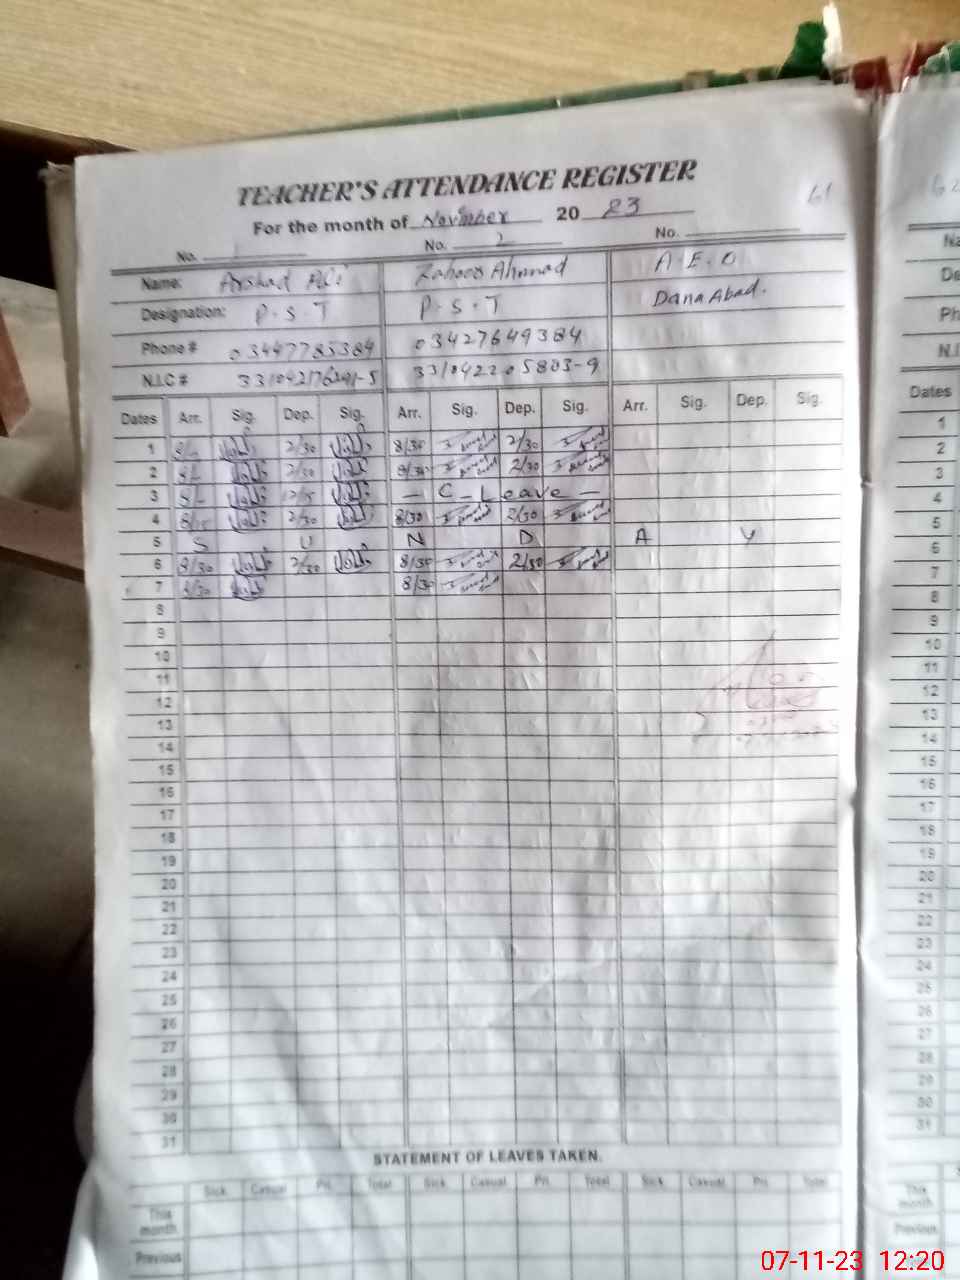 61
TEACHER'S ATTENDANCE REGISTER
For the month of November 20 23
No. No. 2 No.
Name: Arshad Ali Zahoor Ahmad A.E.O
Designation: P.S.T P.S.T Dana Abad.
Phone # 03447785384 03427649384
N.I.C # 331042205803-9
Dates Arr. Sig. Dep. Sig. Arr. Sig. Dep. Sig. Arr. Sig. Dep. Sig.
1 8/- 2/30 8/30 2/30
2 8/- 2/30 8/30 2/30
3 8/- 12/15 - C - Leave -
4 8/15 2/30 8/30 2/30
5 S U N D A Y
6 8/30 2/30 8/30 2/30
7 8/30 8/30
8
9
10
11
12
13
14
15
16
17
18
19
20
21
22
23
24
25
26
27
28
29
30
31
STATEMENT OF LEAVES TAKEN.
Sick Casual Pri. Total Sick Casual Pri. Total Sick Casual Pri. Total
This month
Previous
Na
De
Ph
N.I
Dates
1
2
3
4
5
6
7
8
9
10
11
12
13
14
15
16
17
18
19
20
21
22
23
24
25
26
27
28
29
30
31
This month
Previous
07-11-23 12:20